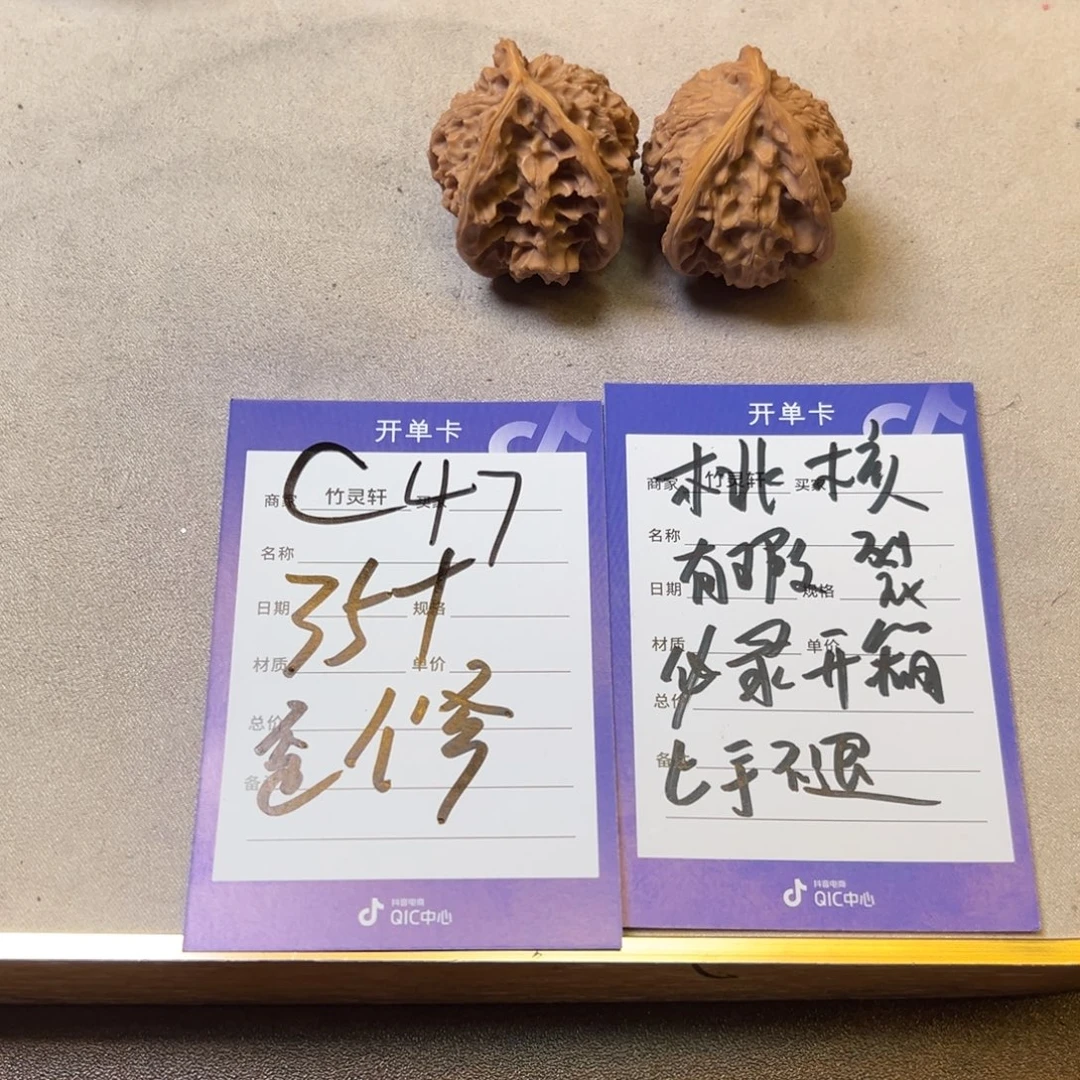 开单卡
C47
商家 竹灵轩 买家
名称
35+
日期 规格
材质 单价
总价
修
备注
抖音电商
QIC中心
开单卡
桃核
商家 竹灵轩 买家
名称
有瑕 裂
日期 规格
纹
材质 单价
必录开箱
总价
上手不退
备注
抖音电商
QIC中心